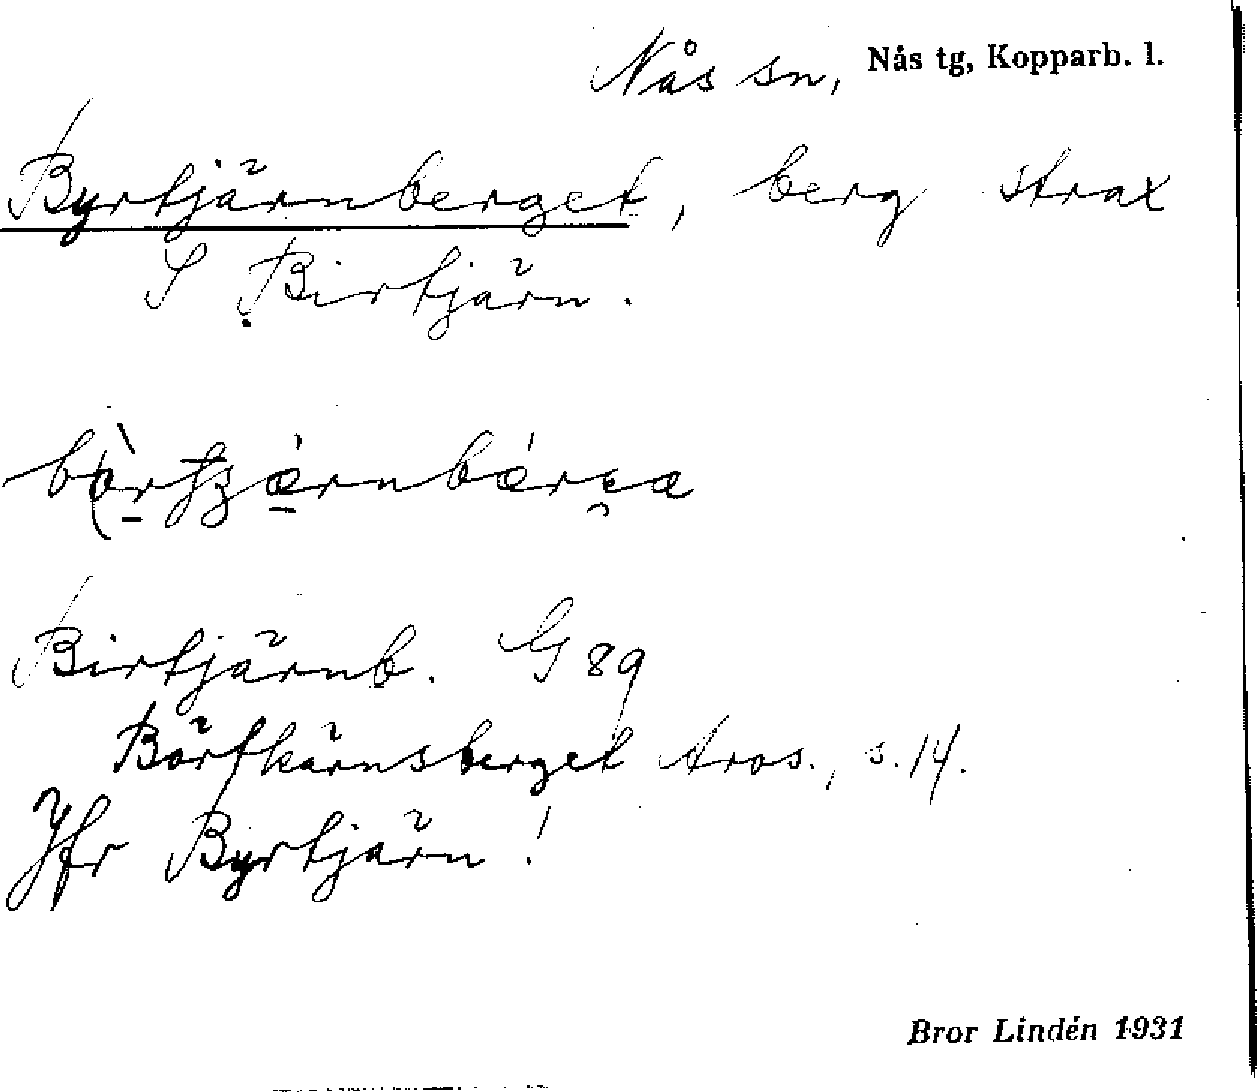 Nås sn, Nås tg, Kopparb. l.
Byrtjärnberget, berg strax
S Birtjärn.
Birtjärnb. G 89
Börtkärnsberget Aros., s. 14.
Jfr Byrtjärn!
Bror Lindén 1931